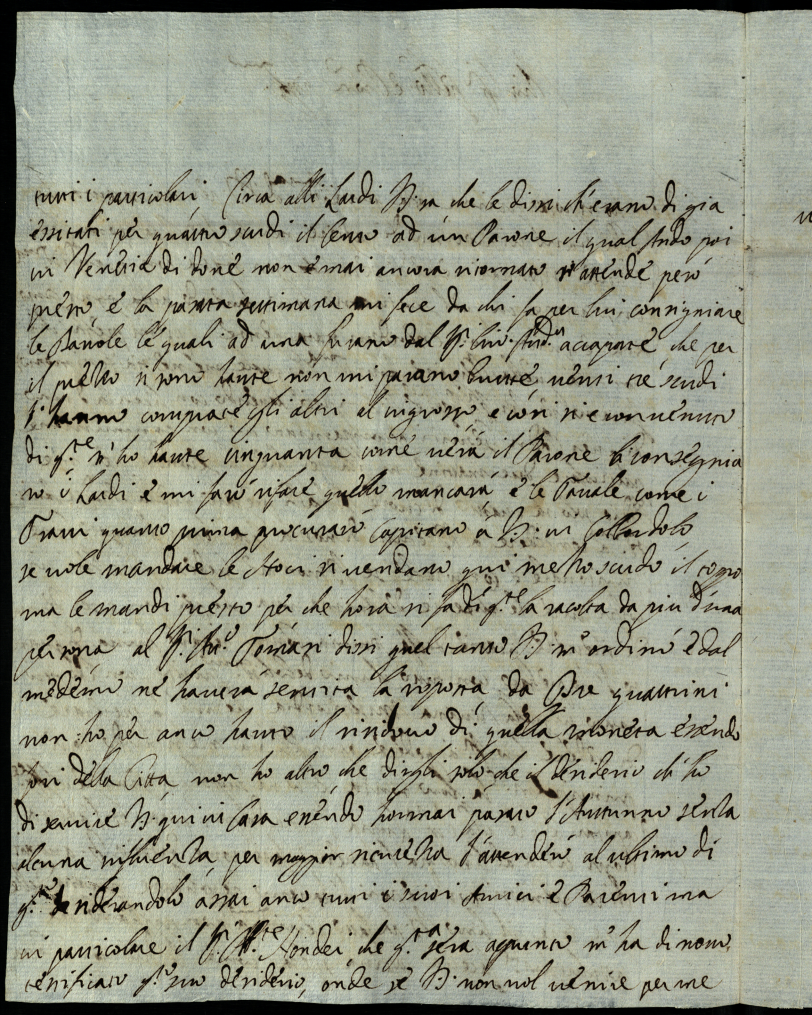 tutti i particolari Circa alli Lardi V.S. sa che le dissi ch'erano di gia
essitati per quattro scudi il Cento ad un Parone il qual andò poi
in Venetia di dove non è mai ancora ritornato si attende però
presto e la passata settimana mi fece da chi fa per lui consigniare
le Tavole le quali ad una furano dal Sig.r accapate che per
il prezzo si sono haute non mi paiano brutte venti tre scudi
l'hanno comprate gli altri al ingrosso e così si e convenuto
di q.te n'ho haute cinquanta come verà il Parone li consegnia
rò i Lardi e mi farò rifare quello mancarà e le Tavale come i
Travi quanto prima procurarò Capitano à V.S. in Collordolo
se vole mandare le Noci si vendano qui mezzo scudo il
ma le mandi presto per che hora si fa di q.te la racolta da piu d'una
persona al Sig.r Ant.o Tomasi dissi quel tanto V.S. m'ordinò e dal
medemo ne haverà sentita la risposta da Bre quattrini
non ho per anco hauto il rindovo di quella moneta essendo
fori della Città non ho altro che dirgli solo che il desiderio ch'ho
di servire V.S. qui in Casa essendo hormai passato l'Autunno senza
alcuna influenza per maggior sicurezza l'attenderò al ultimo di
q.to desiderandolo assai anco tutti i suoi Amici e Parenti ma
in particolare il Sig.r che q.ta sera apunto m'ha di novo
testificato q.to suo desiderio, onde se V.S. non vol venire per me